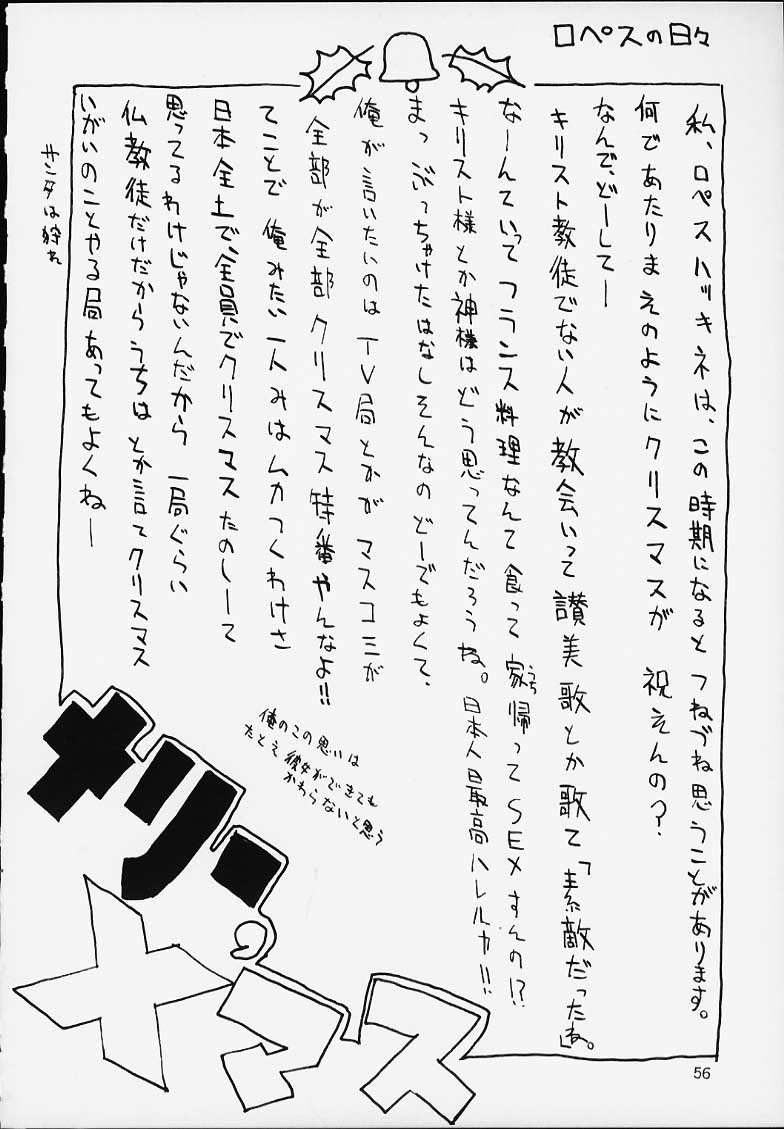 ロペスの日々
私、ロペスハッキネは、この時期になると つねづね思うことがあります。
何であたりまえのようにクリスマスが 祝えんの?
なんで、どーしてー
キリスト教徒でない人が 教会いって 讃美歌とか歌て「素敵だったね。」
なーんていって フランス料理なんて 食って 家帰って SEXすんの!?
うち
キリスト様とか神様はどう思ってんだろうね。日本人最高ハレルヤ!!
まっ ぶっちゃけたはなしそんなのどーでもよくて、
俺が言いたいのは TV局とかが マスコミが
全部が全部 クリスマス特番やんなよ!!
てことで 俺みたい一人みは ムカつくわけさ
日本全土で、全員でクリスマスたのしーて
思ってるわけじゃないんだから 一局ぐらい
仏教徒だけだからうちは とか言てクリスマス
いがいのことやる局あってもよくねー
サンタは狩れ
俺のこの思いは
たとえ 彼女ができても
かわらないと思う
メリー
Xマス
56